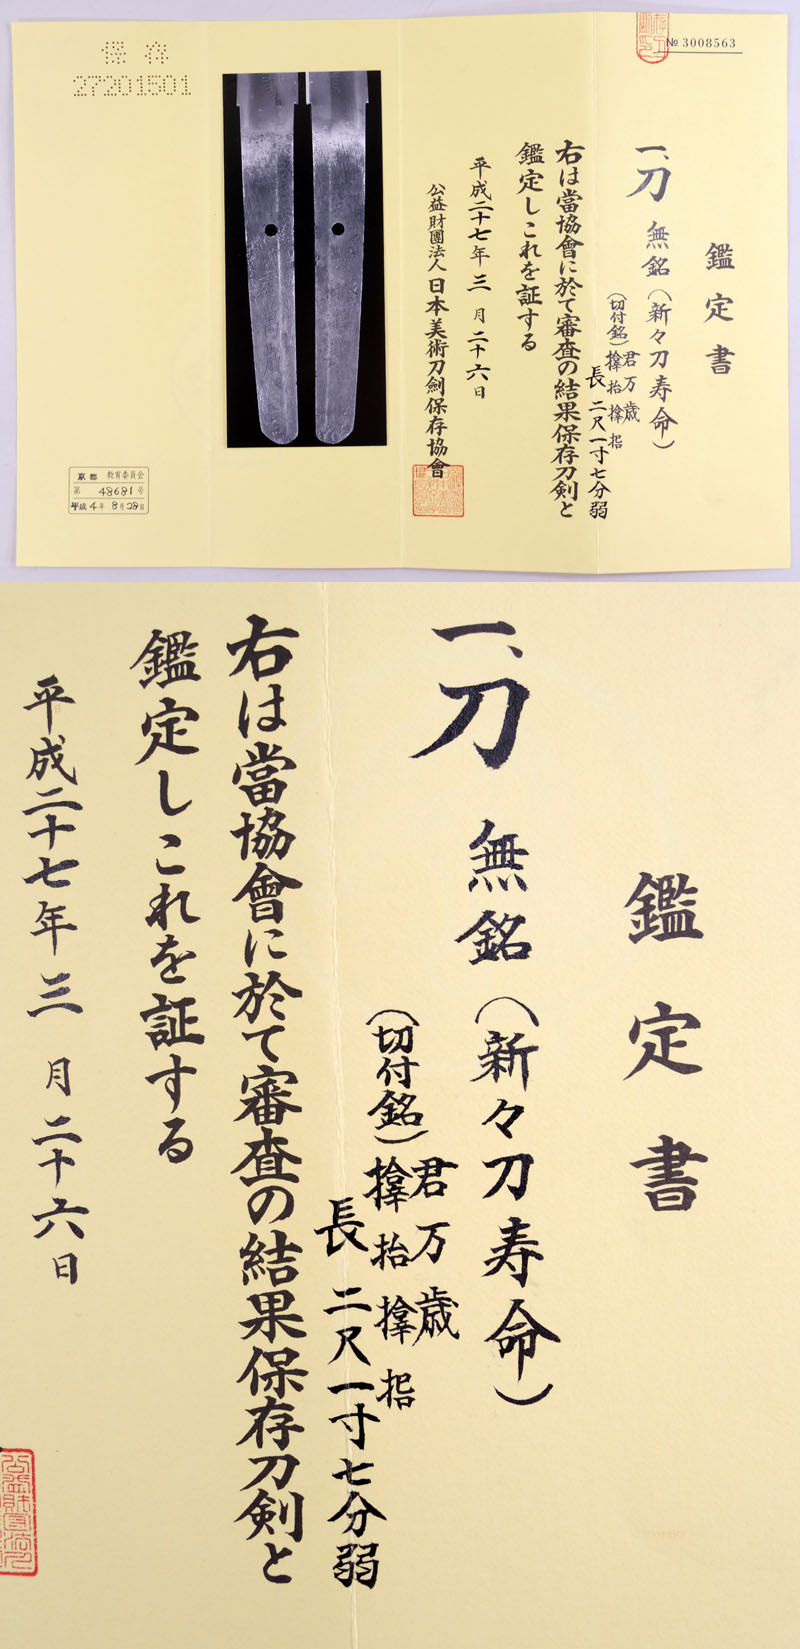 № 3008563
鑑定書
一、刀 無銘（新々刀寿命）
（切付銘）君万歳
長 二尺一寸七分弱
右は當協會に於て審査の結果保存刀剣と
鑑定しこれを証する
平成二十七年 三 月 二十六日
公益財團法人 日本美術刀劍保存協會
保存
27201501
京都 教育委員会
第 48681 号
平成 4 年 8 月 28 日
鑑定書
一、刀 無銘（新々刀寿命）
（切付銘）君万歳
長 二尺一寸七分弱
右は當協會に於て審査の結果保存刀剣と
鑑定しこれを証する
平成二十七年 三 月 二十六日